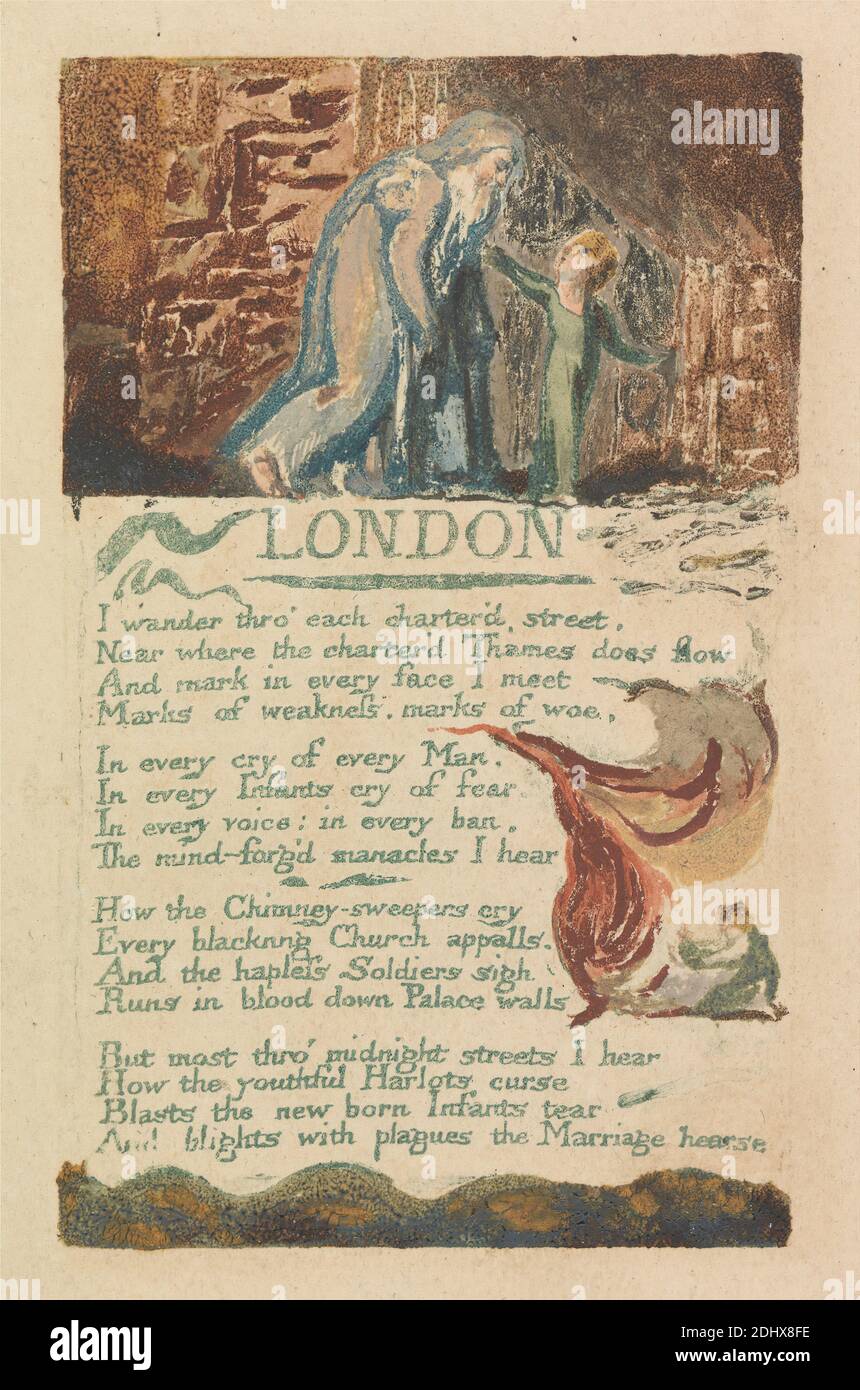 alamy
LONDON
I wander thro' each charter'd street,
Near where the charter'd Thames does flow
And mark in every face I meet
Marks of weakneſs, marks of woe.
In every cry of every Man,
In every Infants cry of fear,
In every voice; in every ban,
The mind-forg'd manacles I hear
How the Chimney-sweepers cry
Every blackning Church appalls,
And the hapleſs Soldiers sigh
Runs in blood down Palace walls
But most thro' midnight streets I hear
How the youthful Harlots curse
Blasts the new born Infants tear
And blights with plagues the Marriage hearse
alamy
Image ID: 2DHX8FE
www.alamy.com